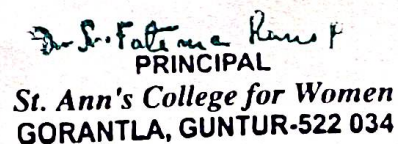 Dr. Sr. Fatima Rani P
PRINCIPAL
St. Ann's College for Women
GORANTLA, GUNTUR-522 034